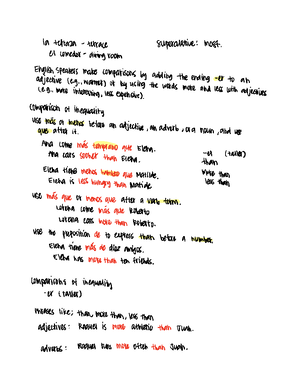 la terraza - terrace    Superlative: most.
el comedor - dining room
English speakers make comparisons by adding the ending -er to an
adjective (e.g., warmer) or by using the words more and less with adjectives
(e.g. more interesting, less expensive).
Comparison of Inequality
Use más or menos before an adjective, an adverb, or a noun, and use
que after it.
Ana come más temprano que Elena.
Ana eats sooner than Elena.
-er (taller)
than
more than
less than
Elena tiene menos hambre que Matilde.
Elena is less hungry than Matilde.
Use más que or menos que after a verb form.
Lorena come más que Roberto
Lorena eats more than Roberto.
Use the preposition de to express than before a number.
Elena tiene más de diez amigos.
Elena has more than ten friends.
Comparisons of inequality
-er (taller)
Phrases like; than, more than, less than
adjectives: Raquel is more athletic than Juan.
adverbs: Raquel runs more often than Juan.